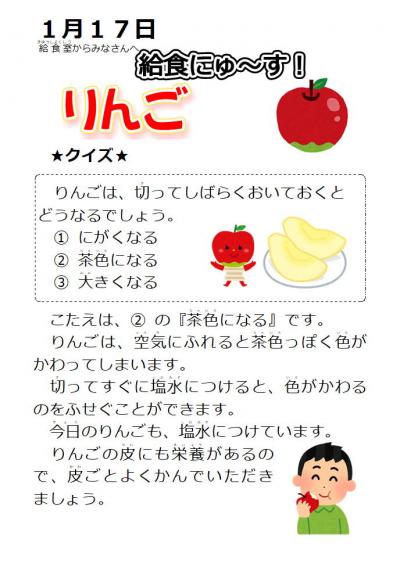 １月１７日
給食室からみなさんへ
給食にゅ～す！
りんご
★クイズ★
りんごは、切ってしばらくおいておくと
どうなるでしょう。
① にがくなる
② 茶色になる
③ 大きくなる
こたえは、② の『茶色になる』です。
りんごは、空気にふれると茶色っぽく色が
かわってしまいます。
切ってすぐに塩水につけると、色がかわる
のをふせぐことができます。
今日のりんごも、塩水につけています。
りんごの皮にも栄養があるの
で、皮ごとよくかんでいただき
ましょう。